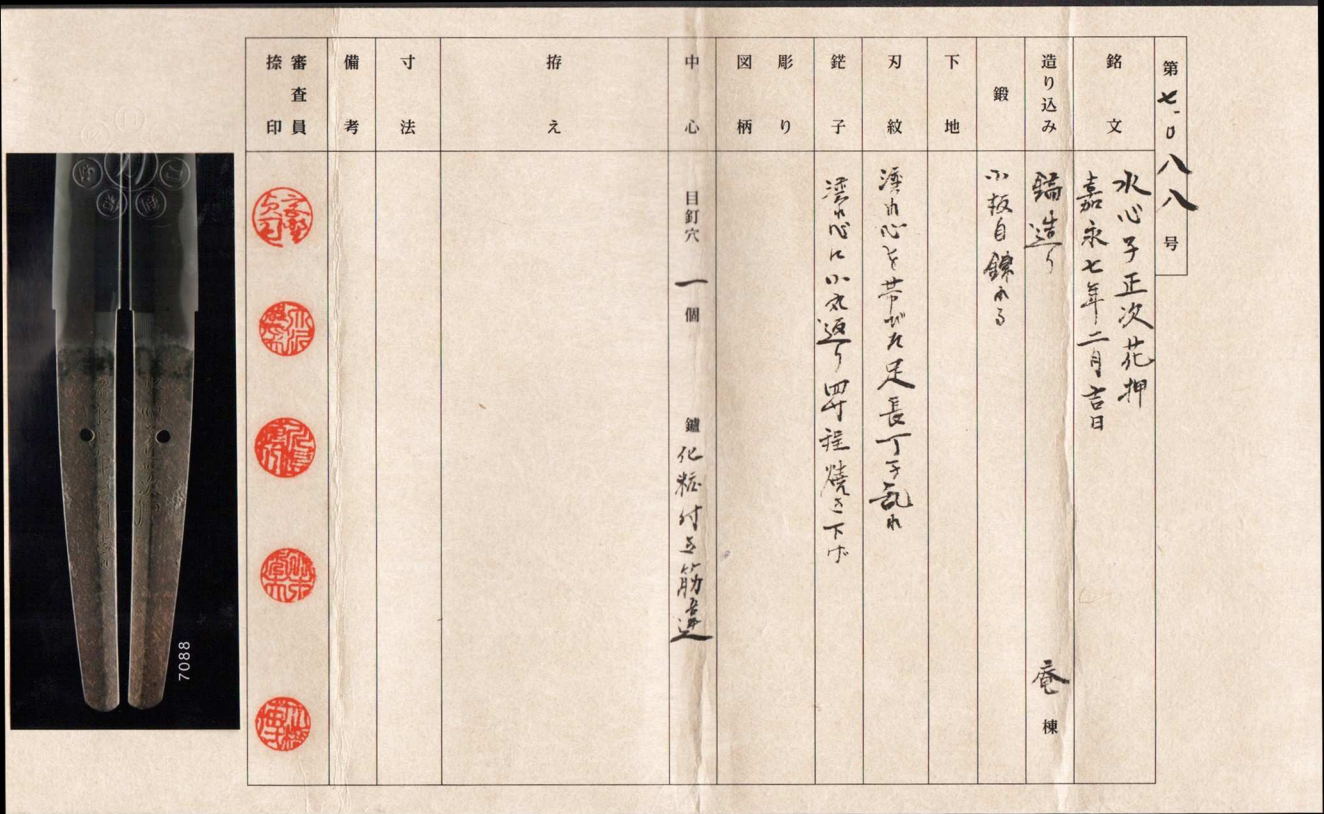 第七、〇八八号
銘文
水心子正次花押
嘉永七年二月吉日
造り込み
鎬造り
庵棟
鍛
小板目錬れる
下地
刃紋
湾れ心を帯びた足長丁子乱れ
鋩子
湾れ心に小丸返り四寸程焼き下げ
彫り
図柄
中心
目釘穴 一個
鑢 化粧付き筋違
拵え
寸法
備考
審査員
捺印
7088